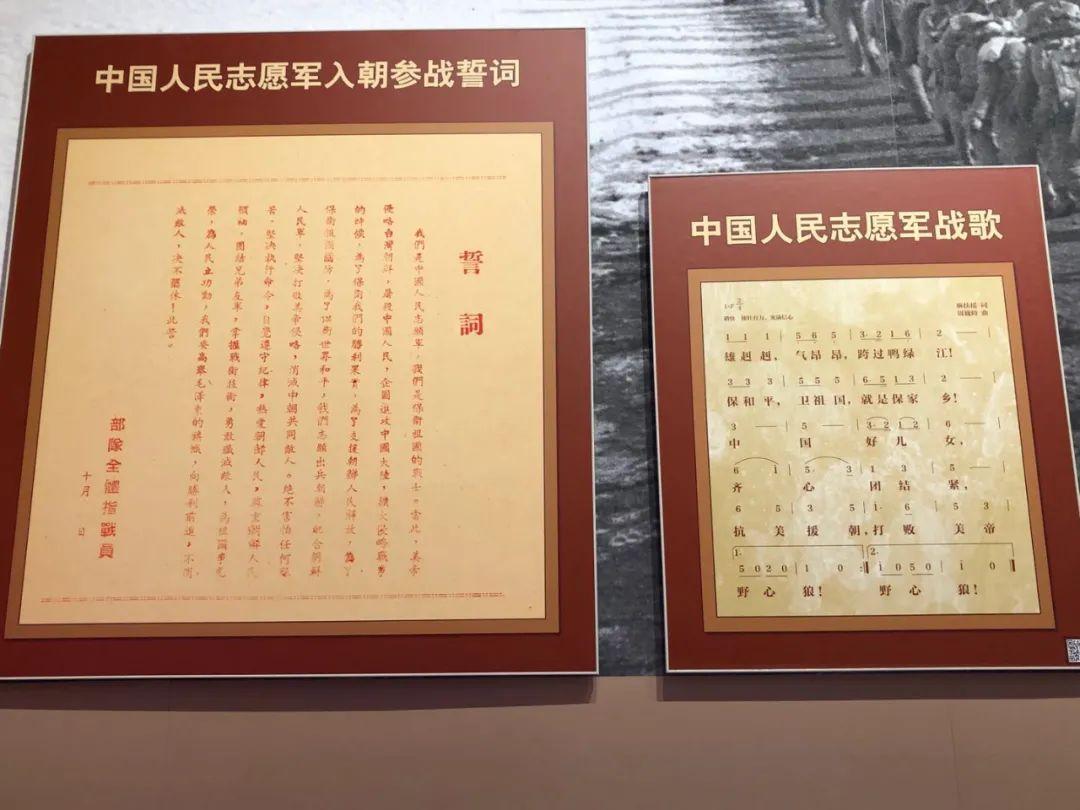 中国人民志愿军入朝参战誓词
誓詞
我們是中國人民志願軍,我們是保衛祖國的戰士。當此,美帝
侵略台灣朝鮮,屠殺中國人民,企圖進攻中國大陸,擴大侵略戰爭
的時候,為了保衛我們的勝利果實,為了支援朝鮮人民解放,為了
保衛祖國國防,為了保衛世界和平,我們志願出兵朝鮮,配合朝鮮
人民軍,堅決打敗美帝侵略,消滅中朝共同敵人。絕不害怕任何
苦,堅決執行命令,自覺遵守紀律,熱愛朝鮮人民,尊重朝鮮人民
領袖,團結兄弟友軍,掌握戰術技術,勇敢殲滅敵人,為祖國爭光
榮,為人民立功勳,我們要高舉毛澤東的旗幟,向勝利前進,不消
滅敵人,決不罷休!此誓。
部隊全體指戰員
十月 日
中国人民志愿军战歌
麻扶摇 词
周巍峙 曲
1 1 1 | 5 6 5 | 3· 2 1 6 | 2 — |
雄赳赳, 气昂昂, 跨过鸭绿 江!
3 3 3 | 5 5 5 | 6 5 1 3 | 2 — |
保和平, 卫祖国, 就是保家 乡!
3 — | 5 — | 3· 2 1 2 | 6 — |
中 国 好儿 女,
6 i | 5 3 | 1 3 | 5 — |
齐 心 团结 紧,
6 5 | 3 5 | i· 6 | 5 3 |
抗 美 援 朝,打 败 美 帝
1. 2.
5 0 2 0 | 1 0 :‖ i 0 5 0 | i 0 ‖
野 心 狼! 野 心 狼!